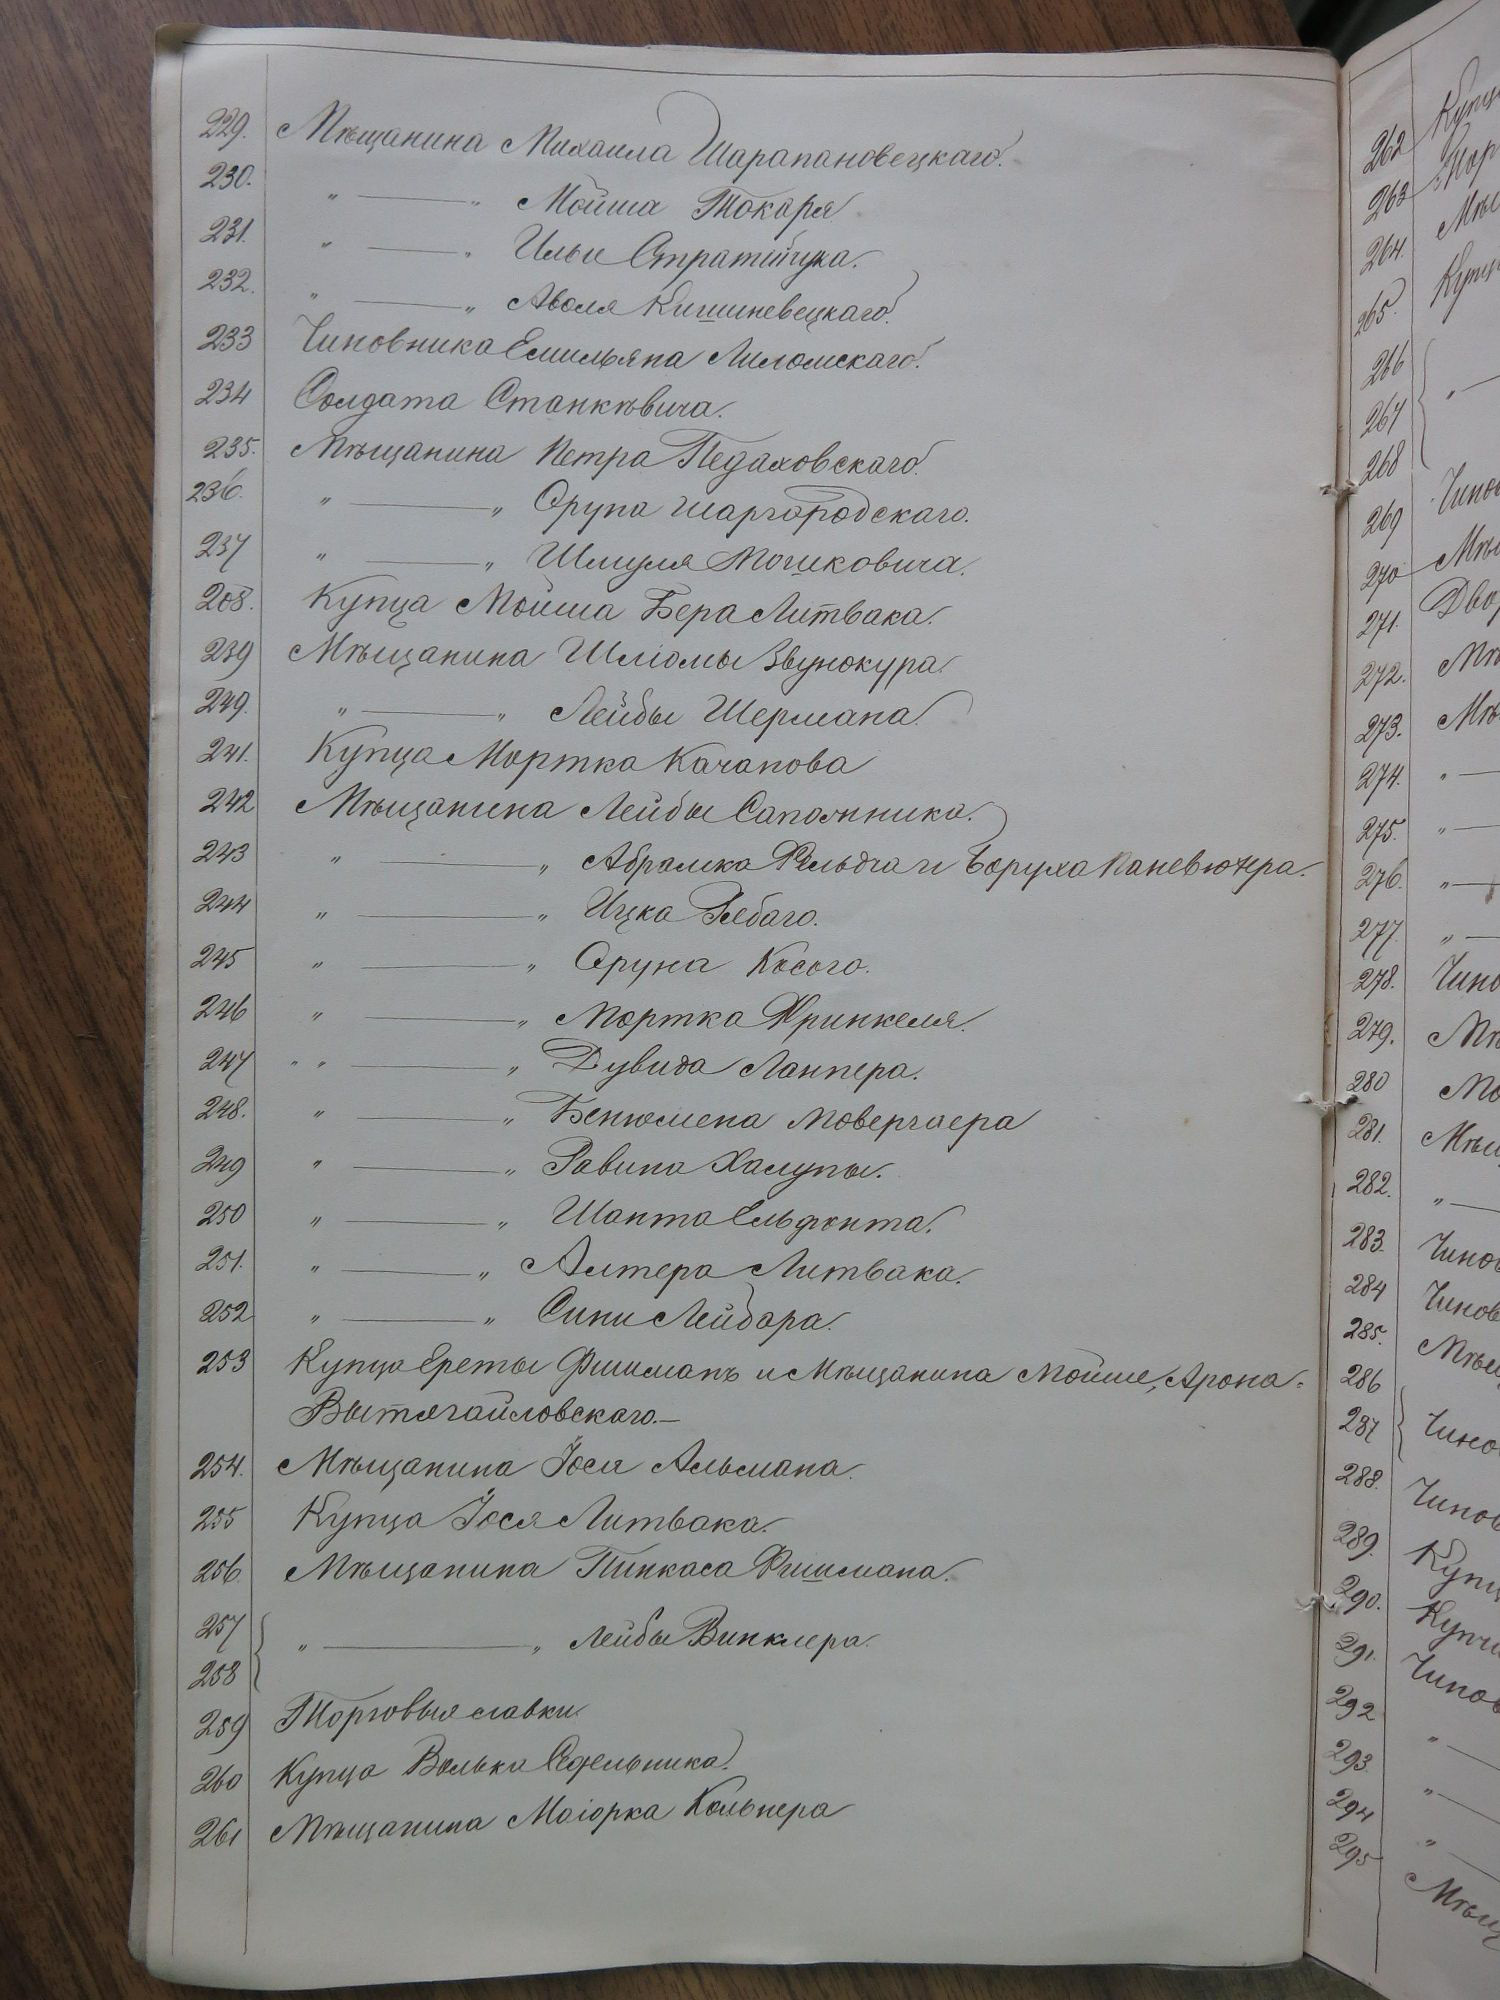 229. Мѣщанина Михаила Шарапановецкаго.
230. " — " Мойша Токаря
231. " — " Ильи Стратійчука.
232. " — " Аволя Кишиневецкаго.
233 Чиновника Емильяна Лиломскаго.
234 Солдата Станкѣвича.
235. Мѣщанина Петра Педаховскаго.
236. " — " Сруna Шаргородскаго.
237 " — " Шмуля Мошковича.
208. Купца Мойша Бера Литвака.
239 Мѣщанина Шліомы Звунокура
249. " — " Лейбы Шермана
241. Купца Мортка Качанова
242 Мѣщанина Лейбы Сапожника.
243 " — " Абрамка Фельдга и Боруха Каневюнера.
244 " — " Ицка Рябаго.
245 " — " Сруна Косого.
246 " — " Мортка Фринкеля.
247 " " — " Дувида Ланпера.
248. " — " Бенюмена Мовергаера
249 " — " Равина Халупы.
250 " — " Шаnта Ельфонта.
251. " — " Алтера Литвака.
252 " — " Сини Лейдара.
253 Купца Ереты Фишманъ и Мѣщанина Мойше, Арона
Вытягайловскаго.—
254. Мѣщанина Іося Альмана.
255 Купца Іося Литвака.
256. Мѣщанина Пинкаса Фишмана.
257 " — " Лейбы Винклера.
258
259 Торговыя лавки.
260 Купца Волька Седельника.
261 Мѣщанина Маіорка Кольнера
262 Купц
263
264. Мѣщ
265. Купц
266 " —
267
268
269 Чинов
270 Мѣщ
271. Двор
272. Мѣ
273. Мѣ
274. " —
275. " —
276. " —
277. " —
278. Чино
279. Мѣ
280 Мо
281. Мѣщ
282. " —
283. Чинов
284 Чинов
285. Мѣщ
286
287 Чино
288. Чинов
289. Купц
290. Купч
291. Чинов
292 " —
293. " —
294 " —
295 Мѣщ